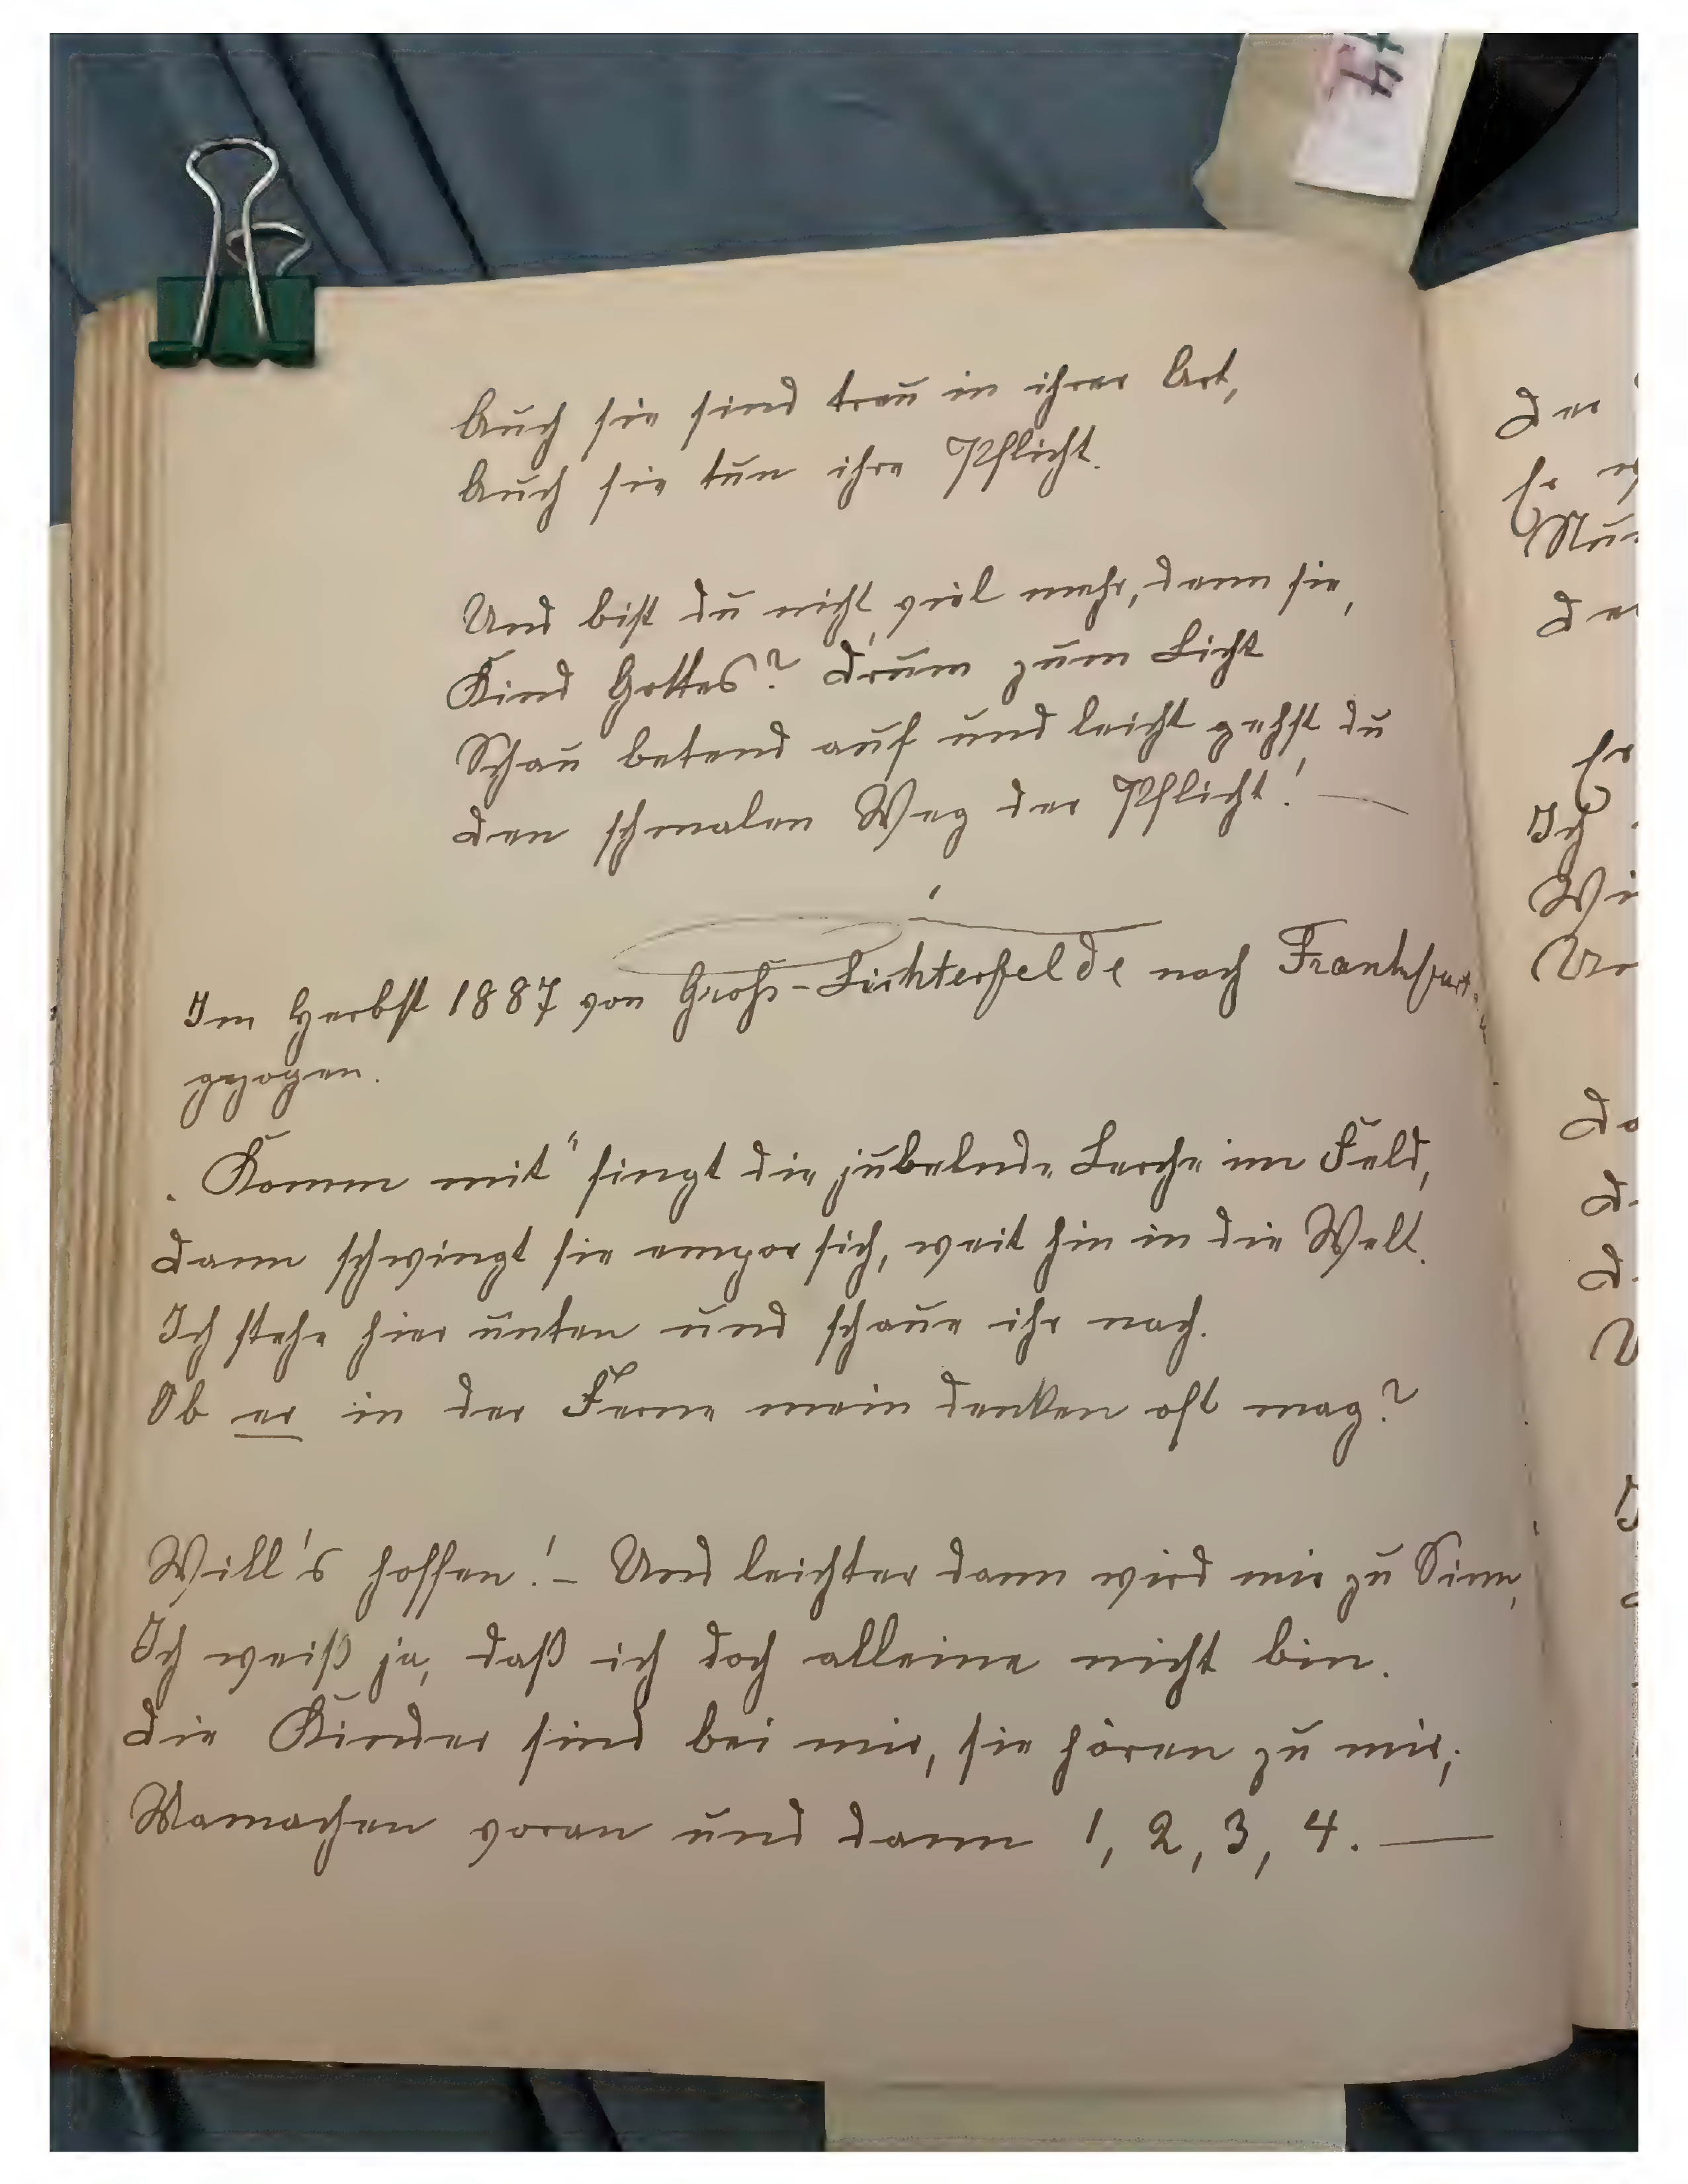 Auch sie sind treu in ihrer Art,
Auch sie tun ihre Pflicht.
Und bist du nicht viel mehr, denn sie,
Kind Gottes? Drum zum Licht
Schau betend auf und leicht gehst du
Den schmalen Weg der Pflicht! —
Im Herbst 1887 von Groß-Lichterfelde nach Frankfurt
gezogen.
„Komm mit" singt die jubelnde Lerche im Feld,
Dann schwingt sie empor sich, weit hin in die Welt.
Ich stehe hier unten und schaue ihr nach.
Ob er in der Ferne mein denken oft mag?
Will's hoffen! – Und leichter dann wird mir zu Sinn,
Ich weiß ja, daß ich doch alleine nicht bin.
Die Kinder sind bei mir, sie hören zu mir;
Mamachen voran und dann 1, 2, 3, 4. —
Der
Er
Nun
Er
Ich